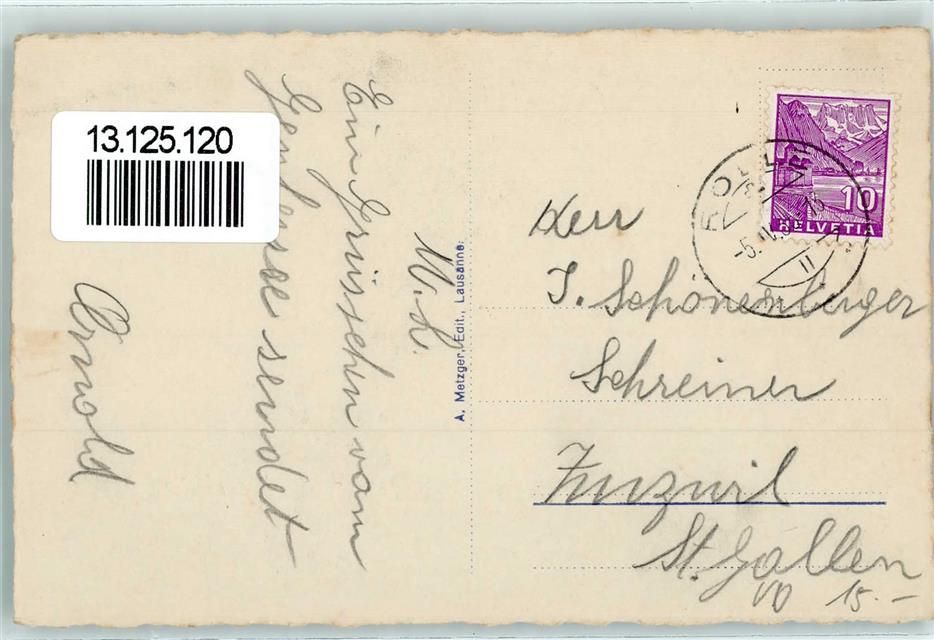 13.125.120
M. L.
Ein Grüsschen vam
Genfersee sendet
Arnold
A. Metzger, Edit., Lausanne.
ROLLE
-5.
15
II
10
HELVETIA
Herr
J. Schönenberger
Schreiner
Zuzwil
St. Gallen
VD 15.-